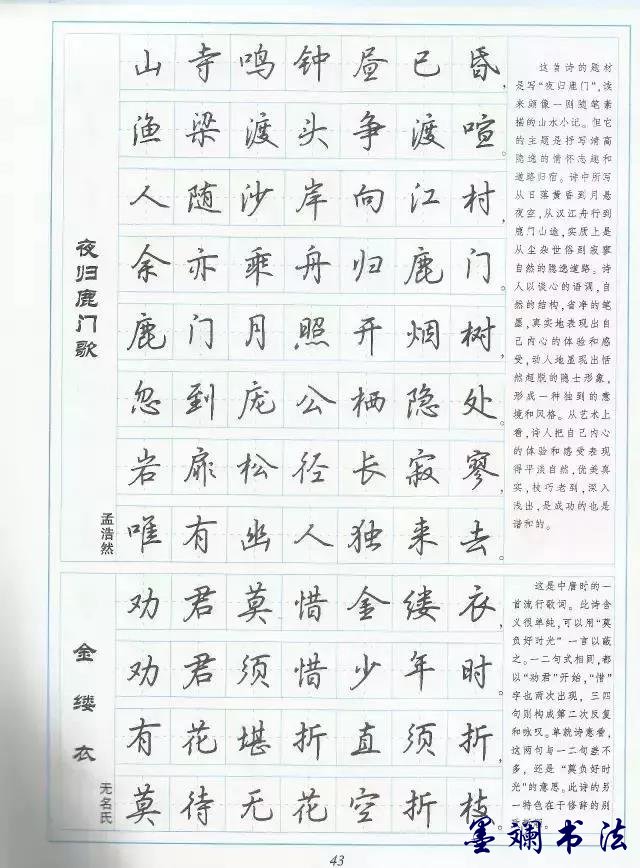 夜归鹿门歌
孟浩然
山寺鸣钟昼已昏，
渔梁渡头争渡喧。
人随沙岸向江村，
余亦乘舟归鹿门。
鹿门月照开烟树，
忽到庞公栖隐处。
岩扉松径长寂寥，
唯有幽人独来去。
这首诗的题材
是写“夜归鹿门”，读
来颇像一则随笔素
描的山水小记。但它
的主题是抒写清高
隐逸的情怀志趣和
道路归宿。诗中所写
从日落黄昏到月悬
夜空，从汉江舟行到
鹿门山途，实质上是
从尘杂世俗到寂寥
自然的隐逸道路。诗
人以谈心的语调，自
然的结构，省净的笔
墨，真实地表现出自
己内心的体验和感
受，动人地显现出恬
然超脱的隐士形象，
形成一种独到的意
境和风格。从艺术上
看，诗人把自己内心
的体验和感受表现
得平淡自然，优美真
实，技巧老到，深入
浅出，是成功的也是
谐和的。
金缕衣
无名氏
劝君莫惜金缕衣，
劝君须惜少年时。
有花堪折直须折，
莫待无花空折枝。
这是中唐时的一
首流行歌词。此诗含
义很单纯，可以用“莫
负好时光”一言以蔽
之。一二句式相同，都
以“劝君”开始，“惜”
字也两次出现，三四
句则构成第二次反复
和咏叹。单就诗意看，
这两句与一二句差不
多，还是“莫负好时
光”的意思。此诗的另
一特色在于修辞的别
墨斓书法
43